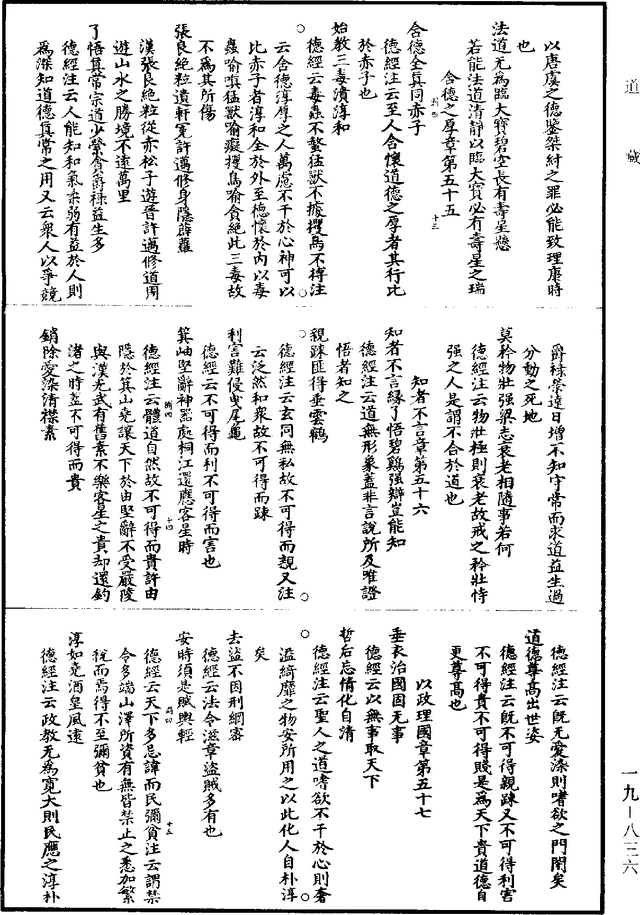 道藏
以唐虞之德鑒桀紂之罪必能致理康時
也
法道无爲臨大寶碧空長有壽星懸
若能法道清靜以臨大寶必有壽星之瑞
含德之厚章第五十五
含德全真同赤子
德經注云至人含懷道德之厚者其行比
於赤子也
始教三毒潰淳和
德經云毒蟲不螫猛獸不據攫鳥不搏注
云含德淳厚之人萬慮不干於心神可以
比赤子者淳和全於外至德懷於內以毒
蟲喻嗔猛獸喻癡攫鳥喻貪絕此三毒故
不爲其所傷
張良絕粒遺軒冕許邁修身隱薜蘿
漢張良絕粒從赤松子遊晉許邁修道周
遊山水之勝境不遠萬里
了悟真常宗道少縈奢爵祿益生多
德經注云人能知和氣柔弱有益於人則
爲深知道德真常之用又云衆人以爭競
爵祿榮達日增不知守常而求道益生過
分動之死地
莫矜物壯强梁志衰老相隨事若何
德經注云物壯極則衰老故戒之矜壯恃
强之人是謂不合於道也
知者不言章第五十六
知者不言緣了悟碧鷄强辯豈能知
德經注云道無形象蓋非言說所及唯證
悟者知之
親踈匪得垂雲鶴
德經注云玄同無私故不可得而親又注
云泛然和衆故不可得而踈
利害難侵曳尾龜
德經云不可得而利不可得而害也
箕岫堅辭神器處桐江還應客星時
德經注云體道自然故不可得而貴許由
隱於箕山堯讓天下於由堅辭不受嚴陵
與漢光武有舊素不樂客星之貴却還釣
渚之時並不可得而貴
銷除愛染清襟素
德經注云旣无愛染則嗜欲之門閉矣
道德尊高出世姿
德經注云旣不可得親踈又不可得利害
不可得貴不可得賤是爲天下貴道德自
更尊高也
以政理國章第五十七
垂衣治國固无事
德經云以無事取天下
哲后忘情化自清
德經注云聖人之道嗜欲不干於心則奢
濫綺靡之物安所用之以此化人自朴淳
矣
去盜不因刑網密
德經云法令滋章盜賊多有也
安時須是賦輿輕
德經云天下多忌諱而民彌貧注云謂禁
令多端山澤所資有無皆禁止之悉加繁
稅而焉得不至彌貧也
淳如堯酒皇風遠
德經注云政教无爲寬大則民應之淳朴
一九—八三六